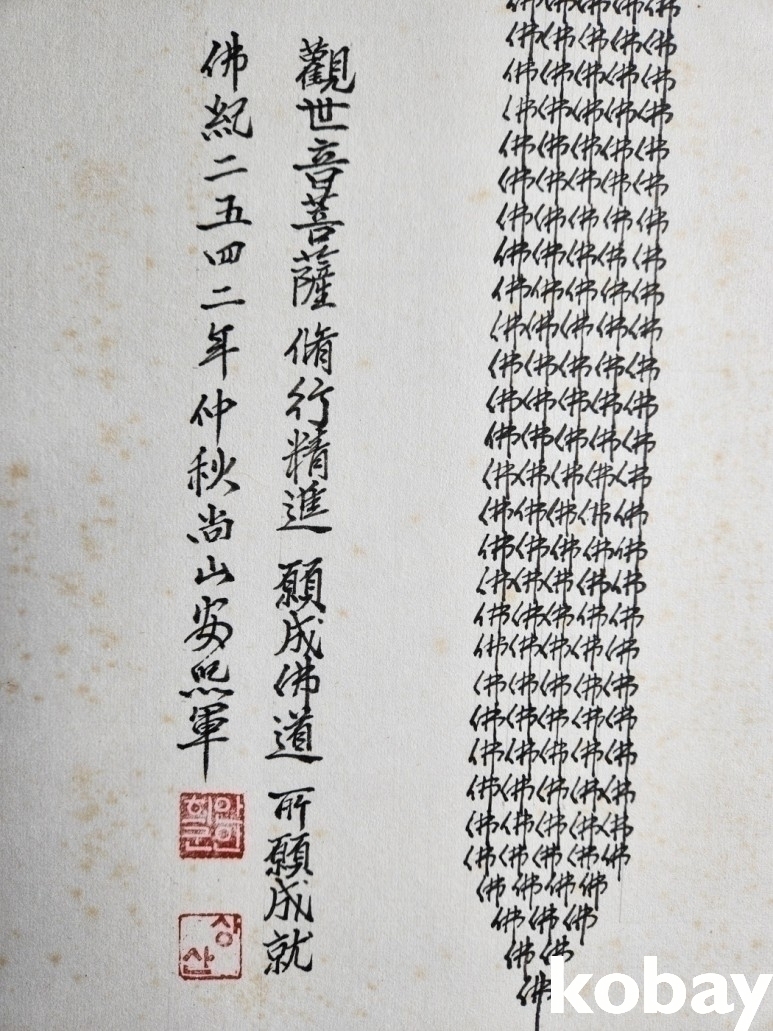 佛佛佛佛佛
佛佛佛佛佛
佛佛佛佛佛
佛佛佛佛佛
佛佛佛佛佛
佛佛佛佛佛
佛佛佛佛佛
佛佛佛佛佛
佛佛佛佛佛
佛佛佛佛佛
佛佛佛佛佛
佛佛佛佛佛
佛佛佛佛佛
佛佛佛佛佛
佛佛佛佛佛
佛佛佛佛佛
佛佛佛佛佛
佛佛佛佛佛
佛佛佛佛佛
佛佛佛佛佛
佛佛佛佛佛
佛佛佛佛佛
佛佛佛佛佛
佛佛佛佛佛
佛佛佛佛佛
佛佛佛佛
佛佛佛
佛佛
佛
觀世音菩薩 脩行精進 願成佛道 所願成就
佛紀二五四二年仲秋尚山安熙軍
상산
kobay